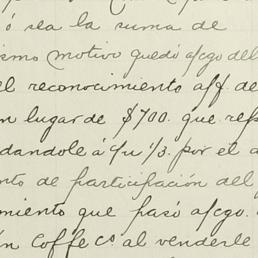 ó sea la suma de
ismo motivo quedó a/cgo del
el reconocimiento a/f. de
n lugar de $700. que rep
dandole á c/u 1/3. por el a
nto de participación del
miento que pasó a/cgo.
ín Coffee Co al venderle